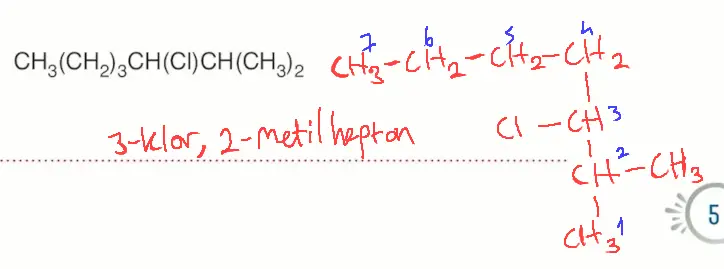 CH₃(CH₂)₃CH(Cl)CH(CH₃)₂
7 6 5 4
CH₃-CH₂-CH₂-CH₂
3-klor, 2-metil heptan
Cl-CH 3
CH 2 -CH₃
CH₃ 1
5